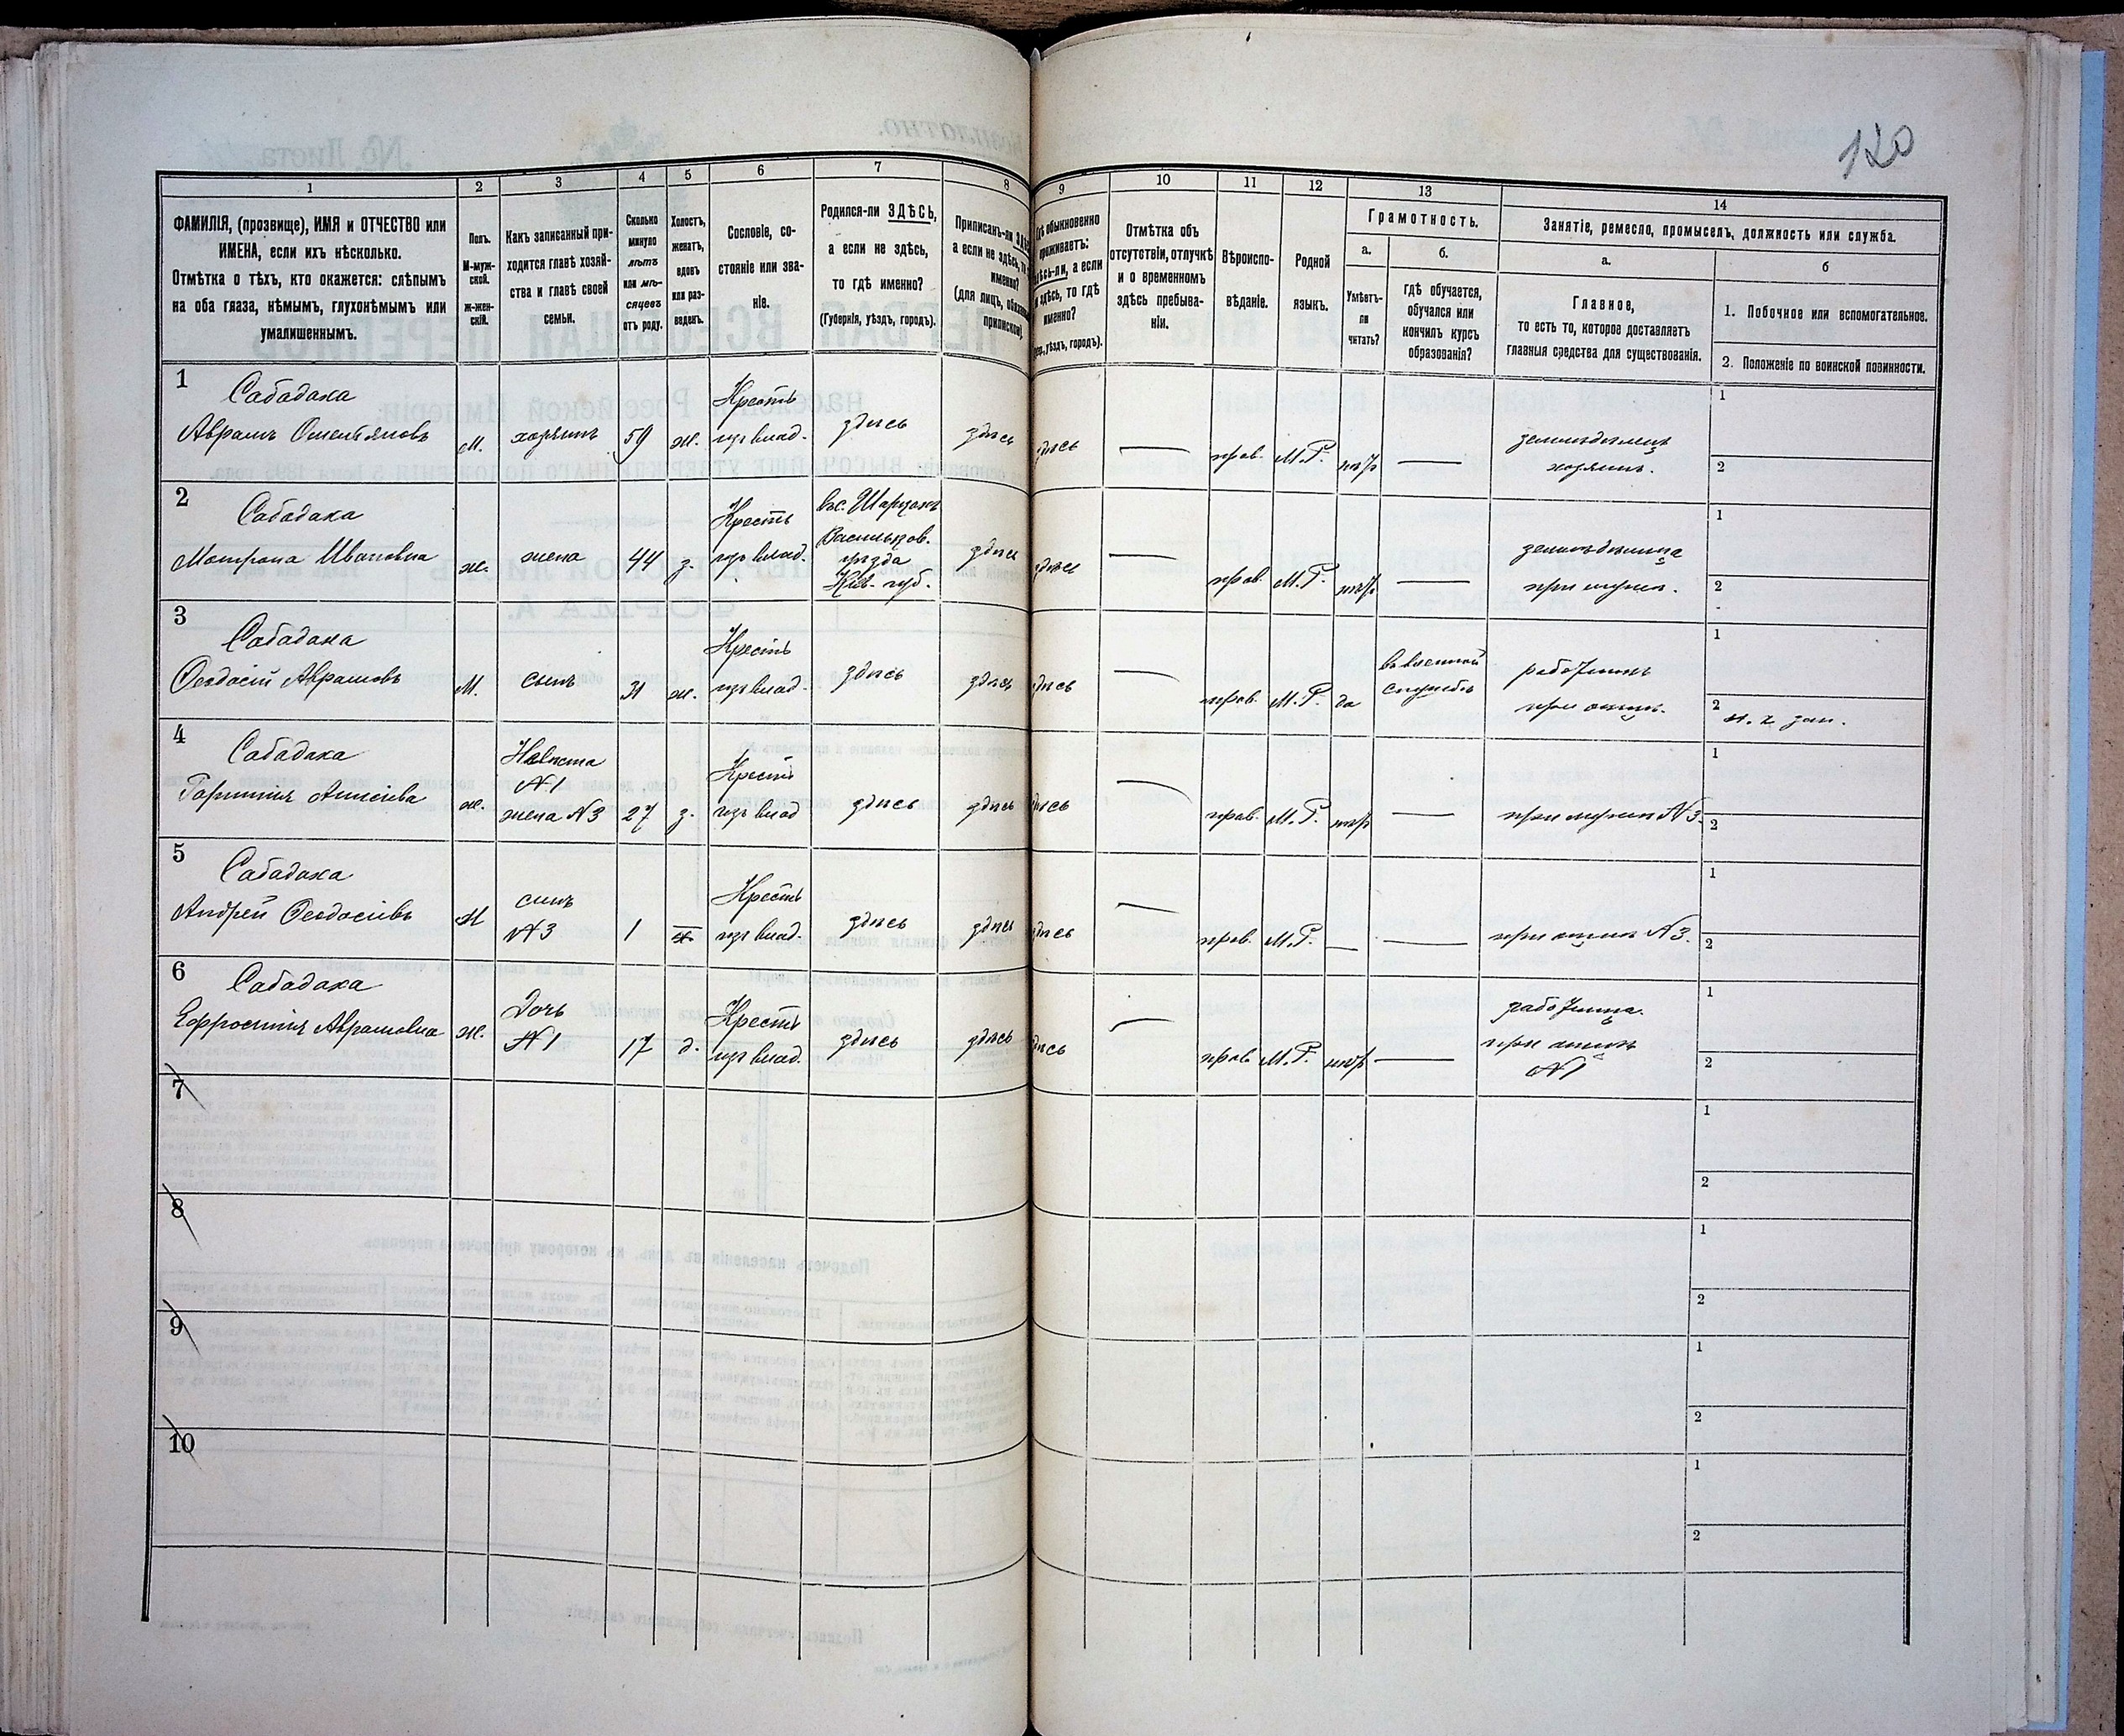 120
1
2
3
4
5
6
7
8
9
10
11
12
13
14
ФАМИЛІЯ, (прозвище), ИМЯ и ОТЧЕСТВО или
ИМЕНА, если ихъ нѣсколько.
Отмѣтка о тѣхъ, кто окажется: слѣпымъ
на оба глаза, нѣмымъ, глухонѣмымъ или
умалишеннымъ.
Полъ.
М-муж-
ской.
ж-жен-
скій.
Какъ записанный при-
ходится главѣ хозяй-
ства и главѣ своей
семьи.
Сколько
минуло
лѣтъ
или мѣ-
сяцевъ
отъ роду.
Холостъ,
женатъ,
вдовъ
или раз-
веденъ.
Сословіе, со-
стояніе или зва-
ніе.
Родился-ли ЗДѢСЬ,
а если не здѣсь,
то гдѣ именно?
(Губернія, уѣздъ, городъ).
Приписанъ-ли
а если не здѣсь,
именно?
(для лицъ,
обыкновенно
проживаетъ:
а если
здѣсь, то гдѣ
именно?
уѣздъ, городъ).
Отмѣтка объ
отсутствіи, отлучкѣ
и о временномъ
здѣсь пребыва-
ніи.
Вѣроиспо-
вѣданіе.
Родной
языкъ.
Грамотность.
а.
Умѣетъ-
ли
читать?
б.
гдѣ обучается,
обучался или
кончилъ курсъ
образованія?
Занятіе, ремесло, промыселъ, должность или служба.
а.
Главное,
то есть то, которое доставляетъ
главныя средства для существованія.
б
1. Побочное или вспомогательное.
2. Положеніе по воинской повинности.
1
Сабадаха
Аврамъ Омельяновъ
М.
хозяинъ
59
ж.
Крестъ
изъ влад.
здѣсь
здѣсь
здѣсь
прав.
М.Р.
нѣт
земледѣлецъ
хозяинъ.
1
2
2
Сабадаха
Матрона Ивановна
ж.
жена
44
з.
Крестъ
изъ влад.
Васильков.
уѣзда
Кіев. губ.
здѣсь
здѣсь
прав.
М.Р.
нѣт
при мужѣ.
1
2
3
Сабадаха
Ѳеодосій Аврамовъ
М.
сынъ
31
ж.
Крестъ
изъ влад.
здѣсь
здѣсь
здѣсь
прав.
М.Р.
да
въ военной
службѣ
работникъ
при отцѣ.
1
2
4
Сабадаха
ж.
Невѣста
№1
жена №3
27
з.
Крестъ
изъ влад
здѣсь
здѣсь
здѣсь
прав.
М.Р.
нѣт
при мужѣ №3.
1
2
5
Сабадаха
Андрей Ѳеодосіевъ
М
сынъ
№3
1
Крестъ
изъ влад.
здѣсь
здѣсь
здѣсь
прав.
М.Р.
при отцѣ №3.
1
2
6
Сабадаха
Ефросинія Аврамовна
ж.
Дочь
№1
17
д.
Крестъ
изъ влад.
здѣсь
здѣсь
здѣсь
прав
М.Р.
нѣт
работница
при отцѣ
№1
1
2
7
1
2
8
1
2
9
1
2
10
1
2